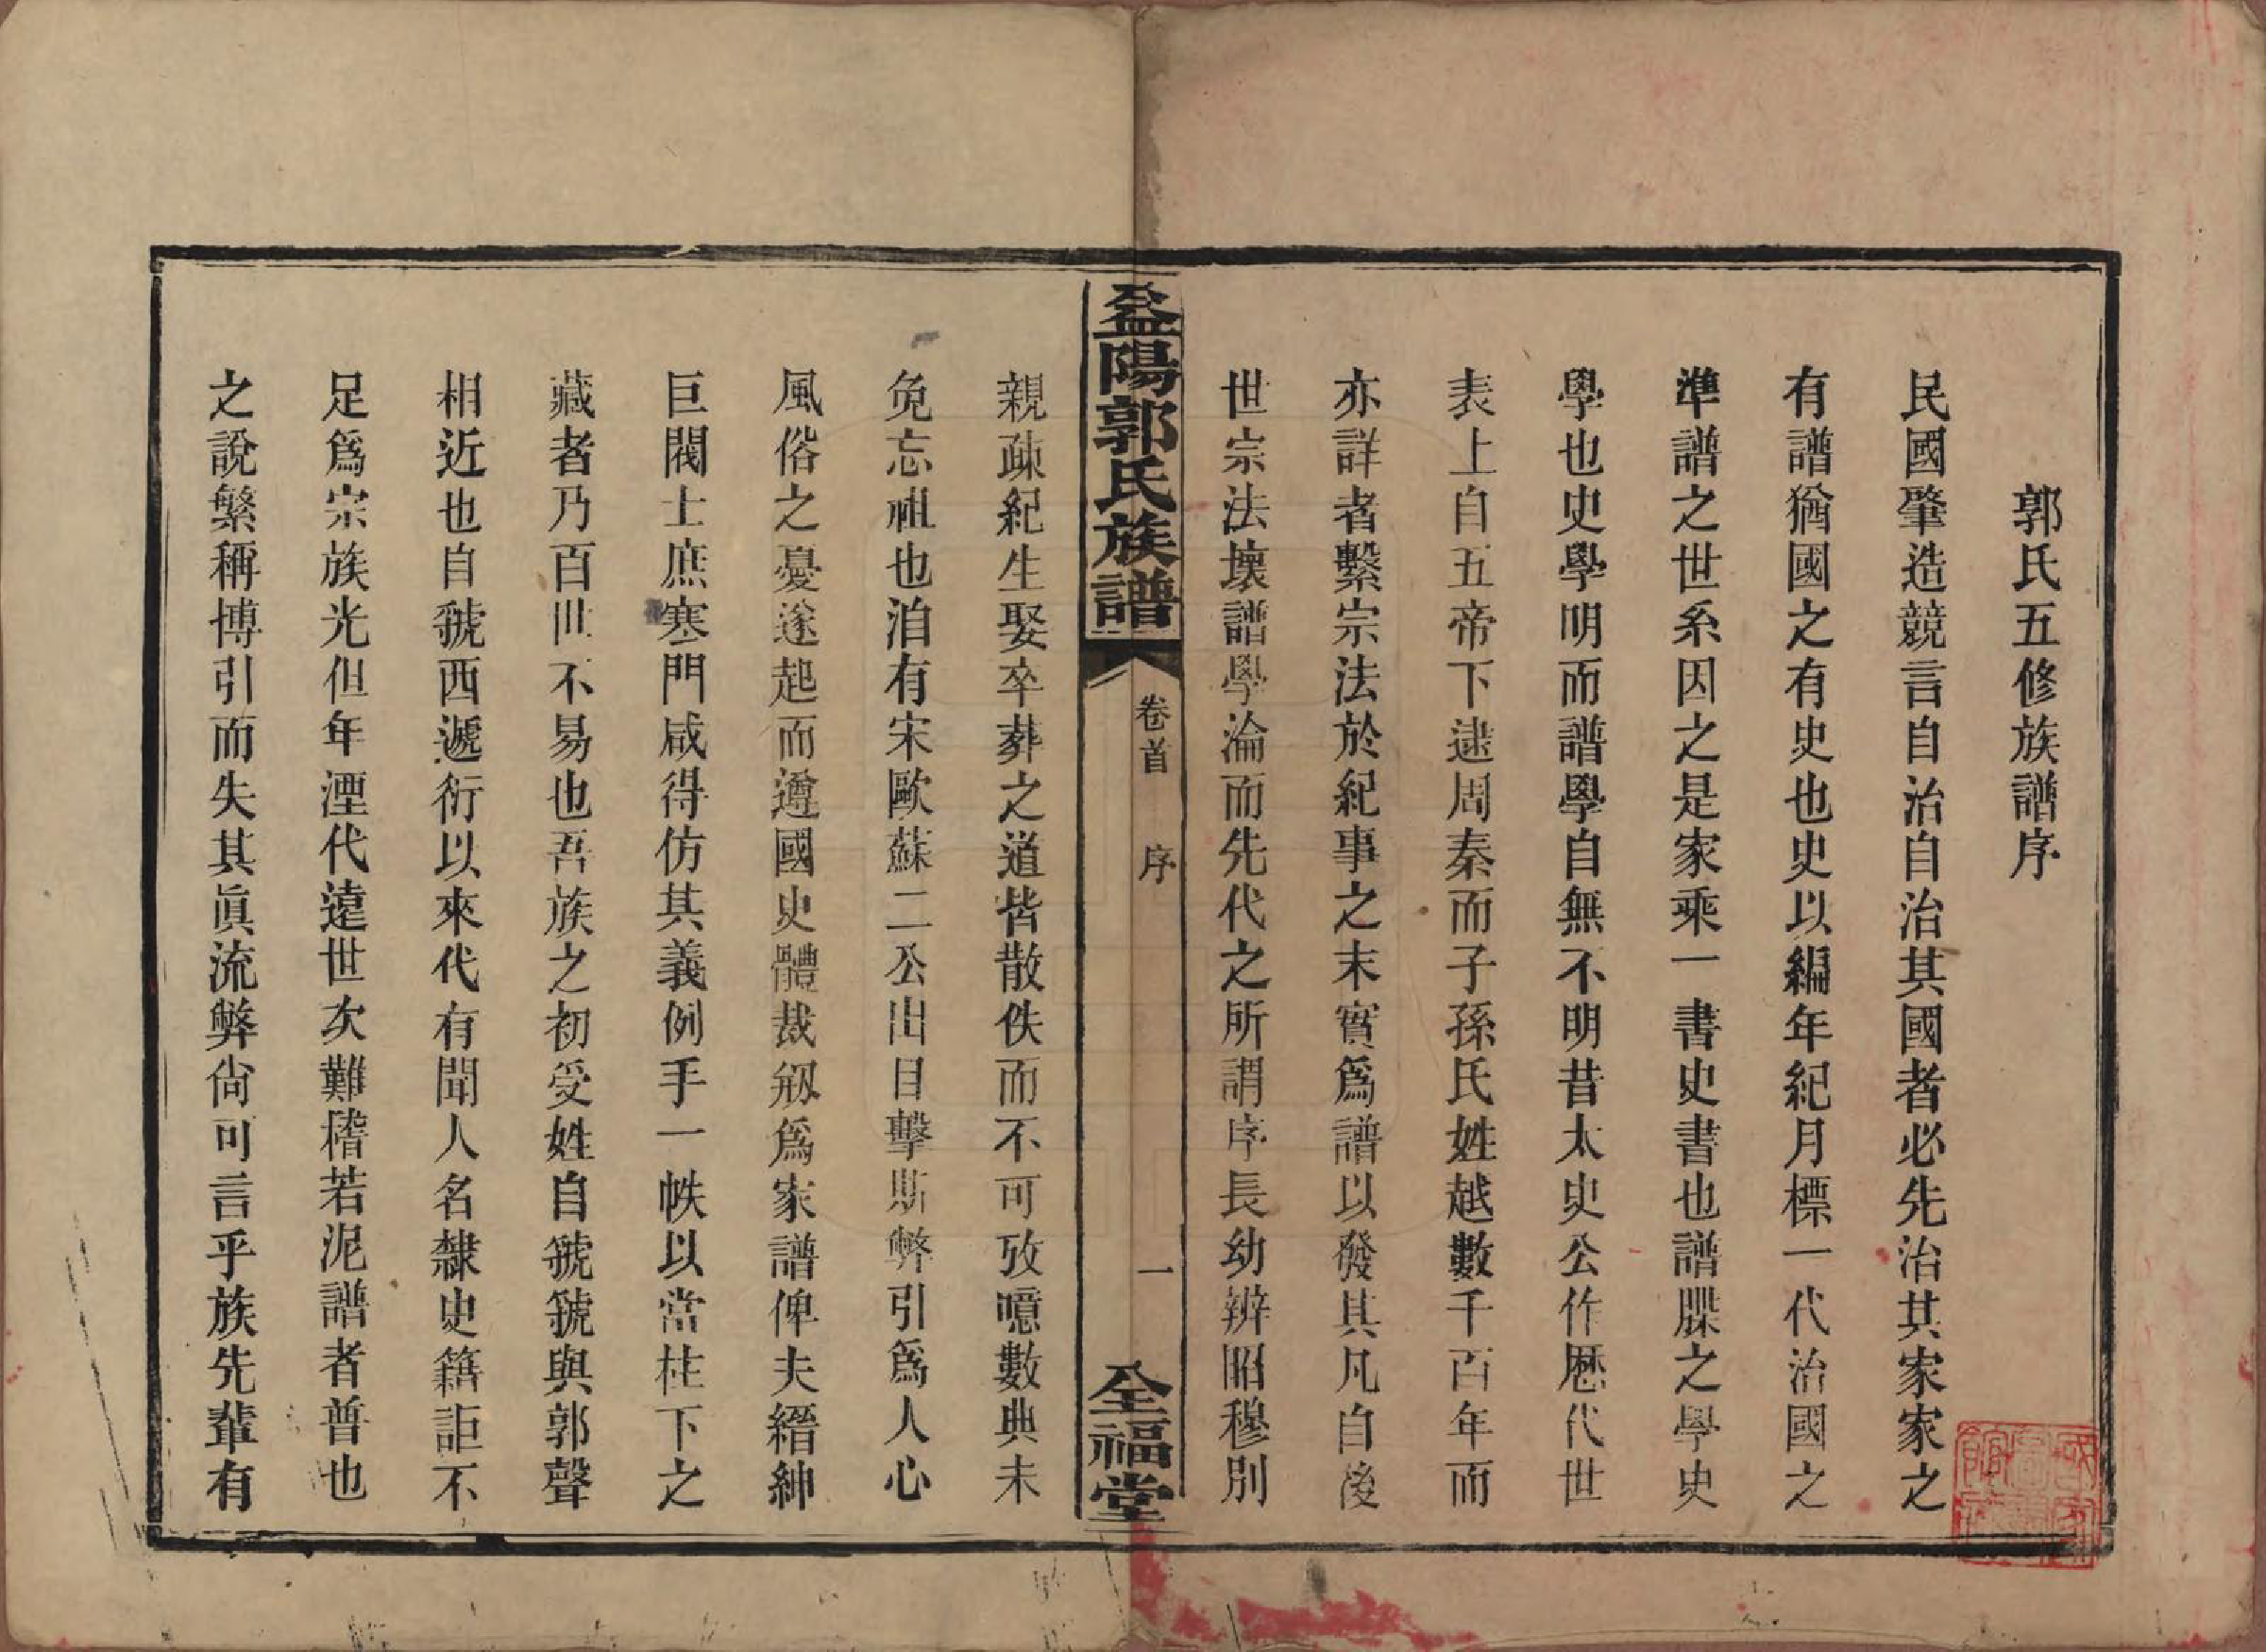 郭氏五修族譜序
民國肇造競言自治自治其國者必先治其家家之
有譜猶國之有史也史以編年紀月標一代治國之
準譜之世系因之是家乘一書史書也譜牒之學史
學也史學明而譜學自無不明昔太史公作歷代世
表上自五帝下逮周秦而子孫氏姓越數千百年而
亦詳者繫宗法於紀事之末實爲譜以發其凡自後
世宗法壞譜學淪而先代之所謂序長幼辨昭穆別
益陽郭氏族譜
卷首 序
一
全福堂
親疎紀生娶卒葬之道皆散佚而不可攷噫數典未
免忘祖也洎有宋歐蘇二公出目擊斯弊引爲人心
風俗之憂遂起而遵國史體裁剏爲家譜俾夫縉紳
巨閥士庶寒門咸得仿其義例手一帙以當柱下之
藏者乃百世不易也吾族之初受姓自虢虢與郭聲
相近也自虢西遞衍以來代有聞人名隸史籍詎不
足爲宗族光但年湮代遠世次難稽若泥譜者普也
之說繁稱博引而失其眞流弊尙可言乎族先輩有